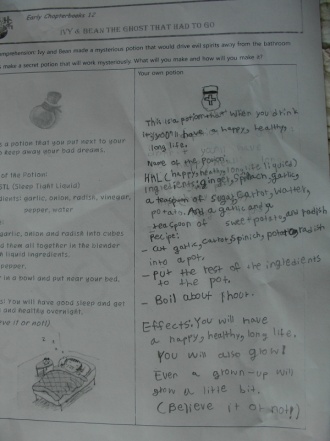 Early Chapterbooks 12
IVY & BEAN THE GHOST THAT HAD TO GO
omprehension: Ivy and Bean made a mysterious potion that would drive evil spirits away from the bathroom.
make a secret potion that will work mysteriously. What will you make and how will you make it?
Your own potion
e a potion that you put next to your
keep away your bad dreams.
of the Potion:
(Sleep Tight Liquid)
dients: garlic, onion, radish, vinegar,
pepper, water
garlic, onion and radish into cubes
them all together in the blender
liquid ingredients.
pepper.
in a bowl and put near your bed.
: You will have good sleep and get
and healthy overnight.
eve it or not!)
This is a potion that when you drink
you'll have a happy, healthy,
long life.
Name of the potion:
HHLL (happy healthy long life liquid)
ingredients: ginger, spinach, garlic,
a teaspoon of sugar, carrot, water,
potato. And a garlic and a
teaspoon of sweet potato, and radish
Recipe:
- cut garlic, carrot, spinich, potato radish
into a pot.
- Put the rest of the ingredients
to the pot.
- Boil about 1 hour.
Effects: You will have
a happy, healthy, long life.
You will also glow!
Even a grown-up will
grow a little bit.
(Believe it or not!)